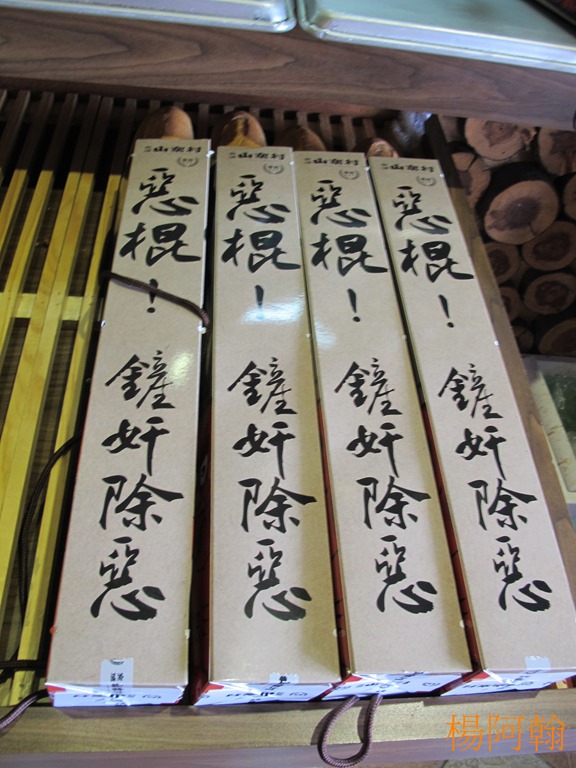 山寨村
惡棍！
鏟奸除惡
山寨村
惡棍！
鏟奸除惡
山寨村
惡棍！
鏟奸除惡
山寨村
惡棍！
鏟奸除惡
楊阿翰